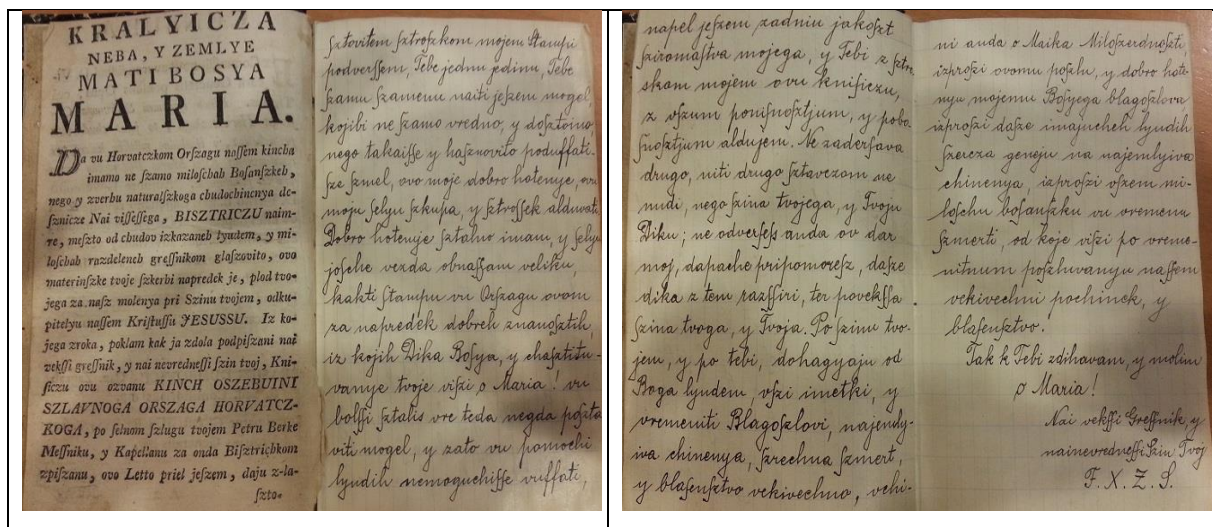 KRALYICZA
NEBA, Y ZEMLYE
MATI BOSYA
MARIA.
Da vu Horvatczkom Orſzagu naſſem kincba
imamo ne ſzamo miloſchab Boſanſzkeh,
nego y zverbu naturalſzkoga chudochinenya de-
ſznicze Nai viſſeſſega, BISZTRICZU naim-
re, meſzto od chudov izkazaneh lyudem, y mi-
loſchab razdeleneh greſſnikom glaſzovito, ovo
materinſzke tvoje ſzkerbi napredek je, plod tvo-
jega za naſz molenya pri Szinu tvojem, odku-
pitelyu naſſem Kriſtuſſu JESUSSU. Iz ko-
jega zroka, poklam kak ja zdola podpiſzani nai
vekſſi greſſnik, y nai nevredneſſi ſzin tvoj, Kni-
ſiczu ovu ozvanu KINCH OSZEBUINI
SZLAVNOGA ORSZAGA HORVATCZ-
KOGA, po ſelnom ſzlugu tvojem Petru Berke
Meſſniku, y Kapellanu za onda Biſztrichkom
zpiſzanu, ovo Letto priel jeſzem, daju z-la-
ſzto-
ſztovitem ſztroſzkom mojem Stampi
podverſſem, Tebe jednu jedinu, Tebe
ſzamu ſzamenu naiti jeſzem mogel,
kojibi ne ſzamo vredno, y doſztomo,
nego takaiſſe y haſznovito poduffati-
ſze ſzmel, ovo moje dobro hotenye, ovu
moju ſelyu ſzkupa, y ſztroſſek alduvati.
Dobro hotenye ſztalno imam, y ſelyu
joſche vezda obnaſſam veliku,
kakti Stampu vu Orſzagu ovom
za napredek dobreh znanoſztih,
iz kojih Dika Boſya, y chaſztitu-
vanye tvoje viſzi o Maria! vu
bolſſi ſztalis vre teda negda poſzta
viti mogel, y zato vu pomochi
lyudih nemoguchiſſe vuffati,
napel jeſzem zadniu jakoſzt
ſziromaſtva mojega, y Tebi z ſztro-
ſkom mojem ovu kniſiczu,
z oſzum poniſnoſztjum, y pobo
ſnoſztjum aldujem. Ne zaderſava
drugo, niti drugo ſztavczom ne
nudi, nego ſzina tvojega, y Tvoju
Diku; ne odverſeſs anda ov dar
moj, dapache pripomoreſz, daſze
dika z tem razſſiri, ter povekſſa
ſzina tvoga, y Tvoja. Po ſzinu tvo-
jem, y po tebi, dohagyaju od
Boga lyudem, vſzi imetki, y
vremeniti Blagoſzlovi, najemly-
iva chinenya, ſzrechna ſzmert,
y blaſenſztvo vekivechno, vchi-
ni anda o Maika Miloſzerdnoſzti,
izproſzi ovomu poſzlu, y dobro hote-
nyu mojemu Boſyega blagoſzlova
izproſzi daſze imajucheh lyudih
ſzercza geneju na najemlyiva
chinenya, izproſzi oſzem mi-
loſchu boſanſzku vu vremenu
ſzmerti, od koje viſzi po vreme-
nitnum poſzluvanyu naſſem
vekivechni pochinek, y
blaſenſztvo.
Tak k Tebi zdihavam, y molim
o Maria!
Nai vekſſi Greſſnik, y
nainevredneſſi Szin Tvoj
F. X. Z. S.